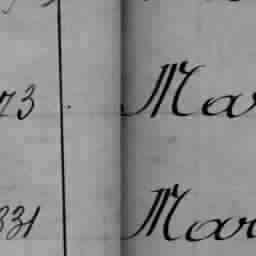 73 Mar
331 Mar